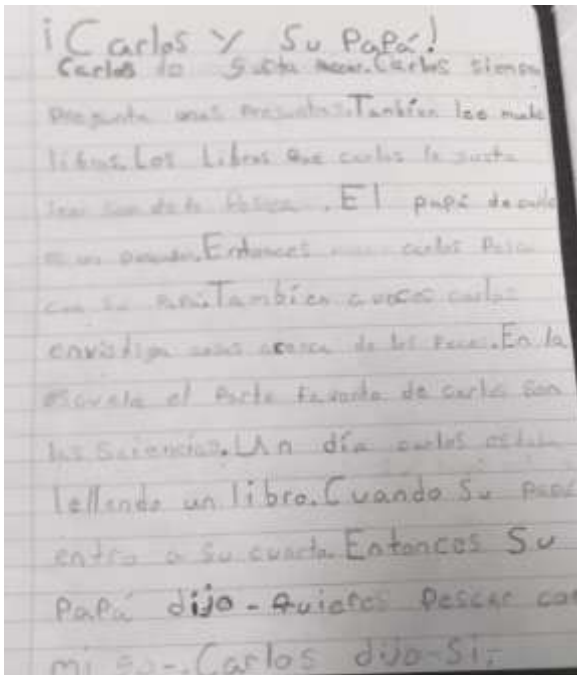 ¡Carlos y Su Papá!
Carlos le gusta Carlos siempr
Pregunta unas Preguntas. También lee
libros. Los Libros que carlos le gusta
leer son de la Pesca. El papá de carlos
es un pescador. Entonces carlos Pesca
con su Papá. También a veces carlos
envistiga cosas acerca de los Peces. En la
escuela el Parte Favorito de carlos son
las Sciencias. Un día carlos estaba
lellendo un libro. Cuando Su Papá
entro a su cuarto. Entonces Su
Papá dijo-Quieres Pescar con
mi go-. Carlos dijo-Si-